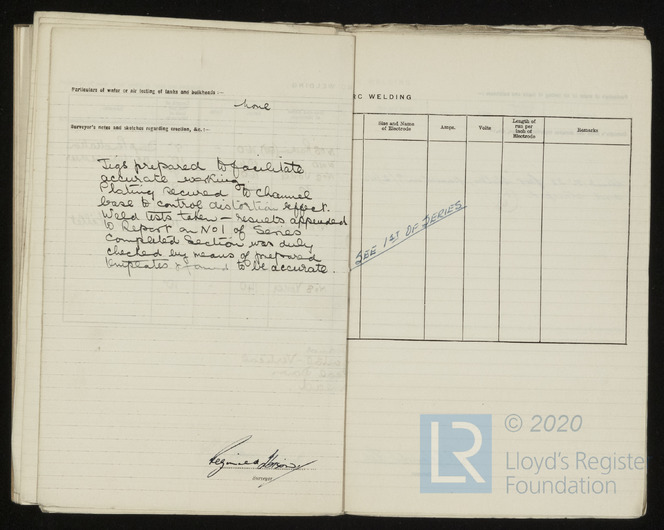 Particulars of water or air testing of tanks and bulkheads :—
None
Surveyor's notes and sketches regarding erection, &c. :—
Jigs prepared to facilitate
accurate working.
Plating secured to channel
base to control distortion effect.
Weld tests taken – results appended
to Report on No 1 of Series
Completed Section was duly
checked by means of prepared
templates & found to be accurate.
Surveyor
RC WELDING
Size and Name of Electrode
Amps.
Volts
Length of run per inch of Electrode
Remarks
SEE 1ST OF SERIES
LR
© 2020
Lloyd's Register
Foundation